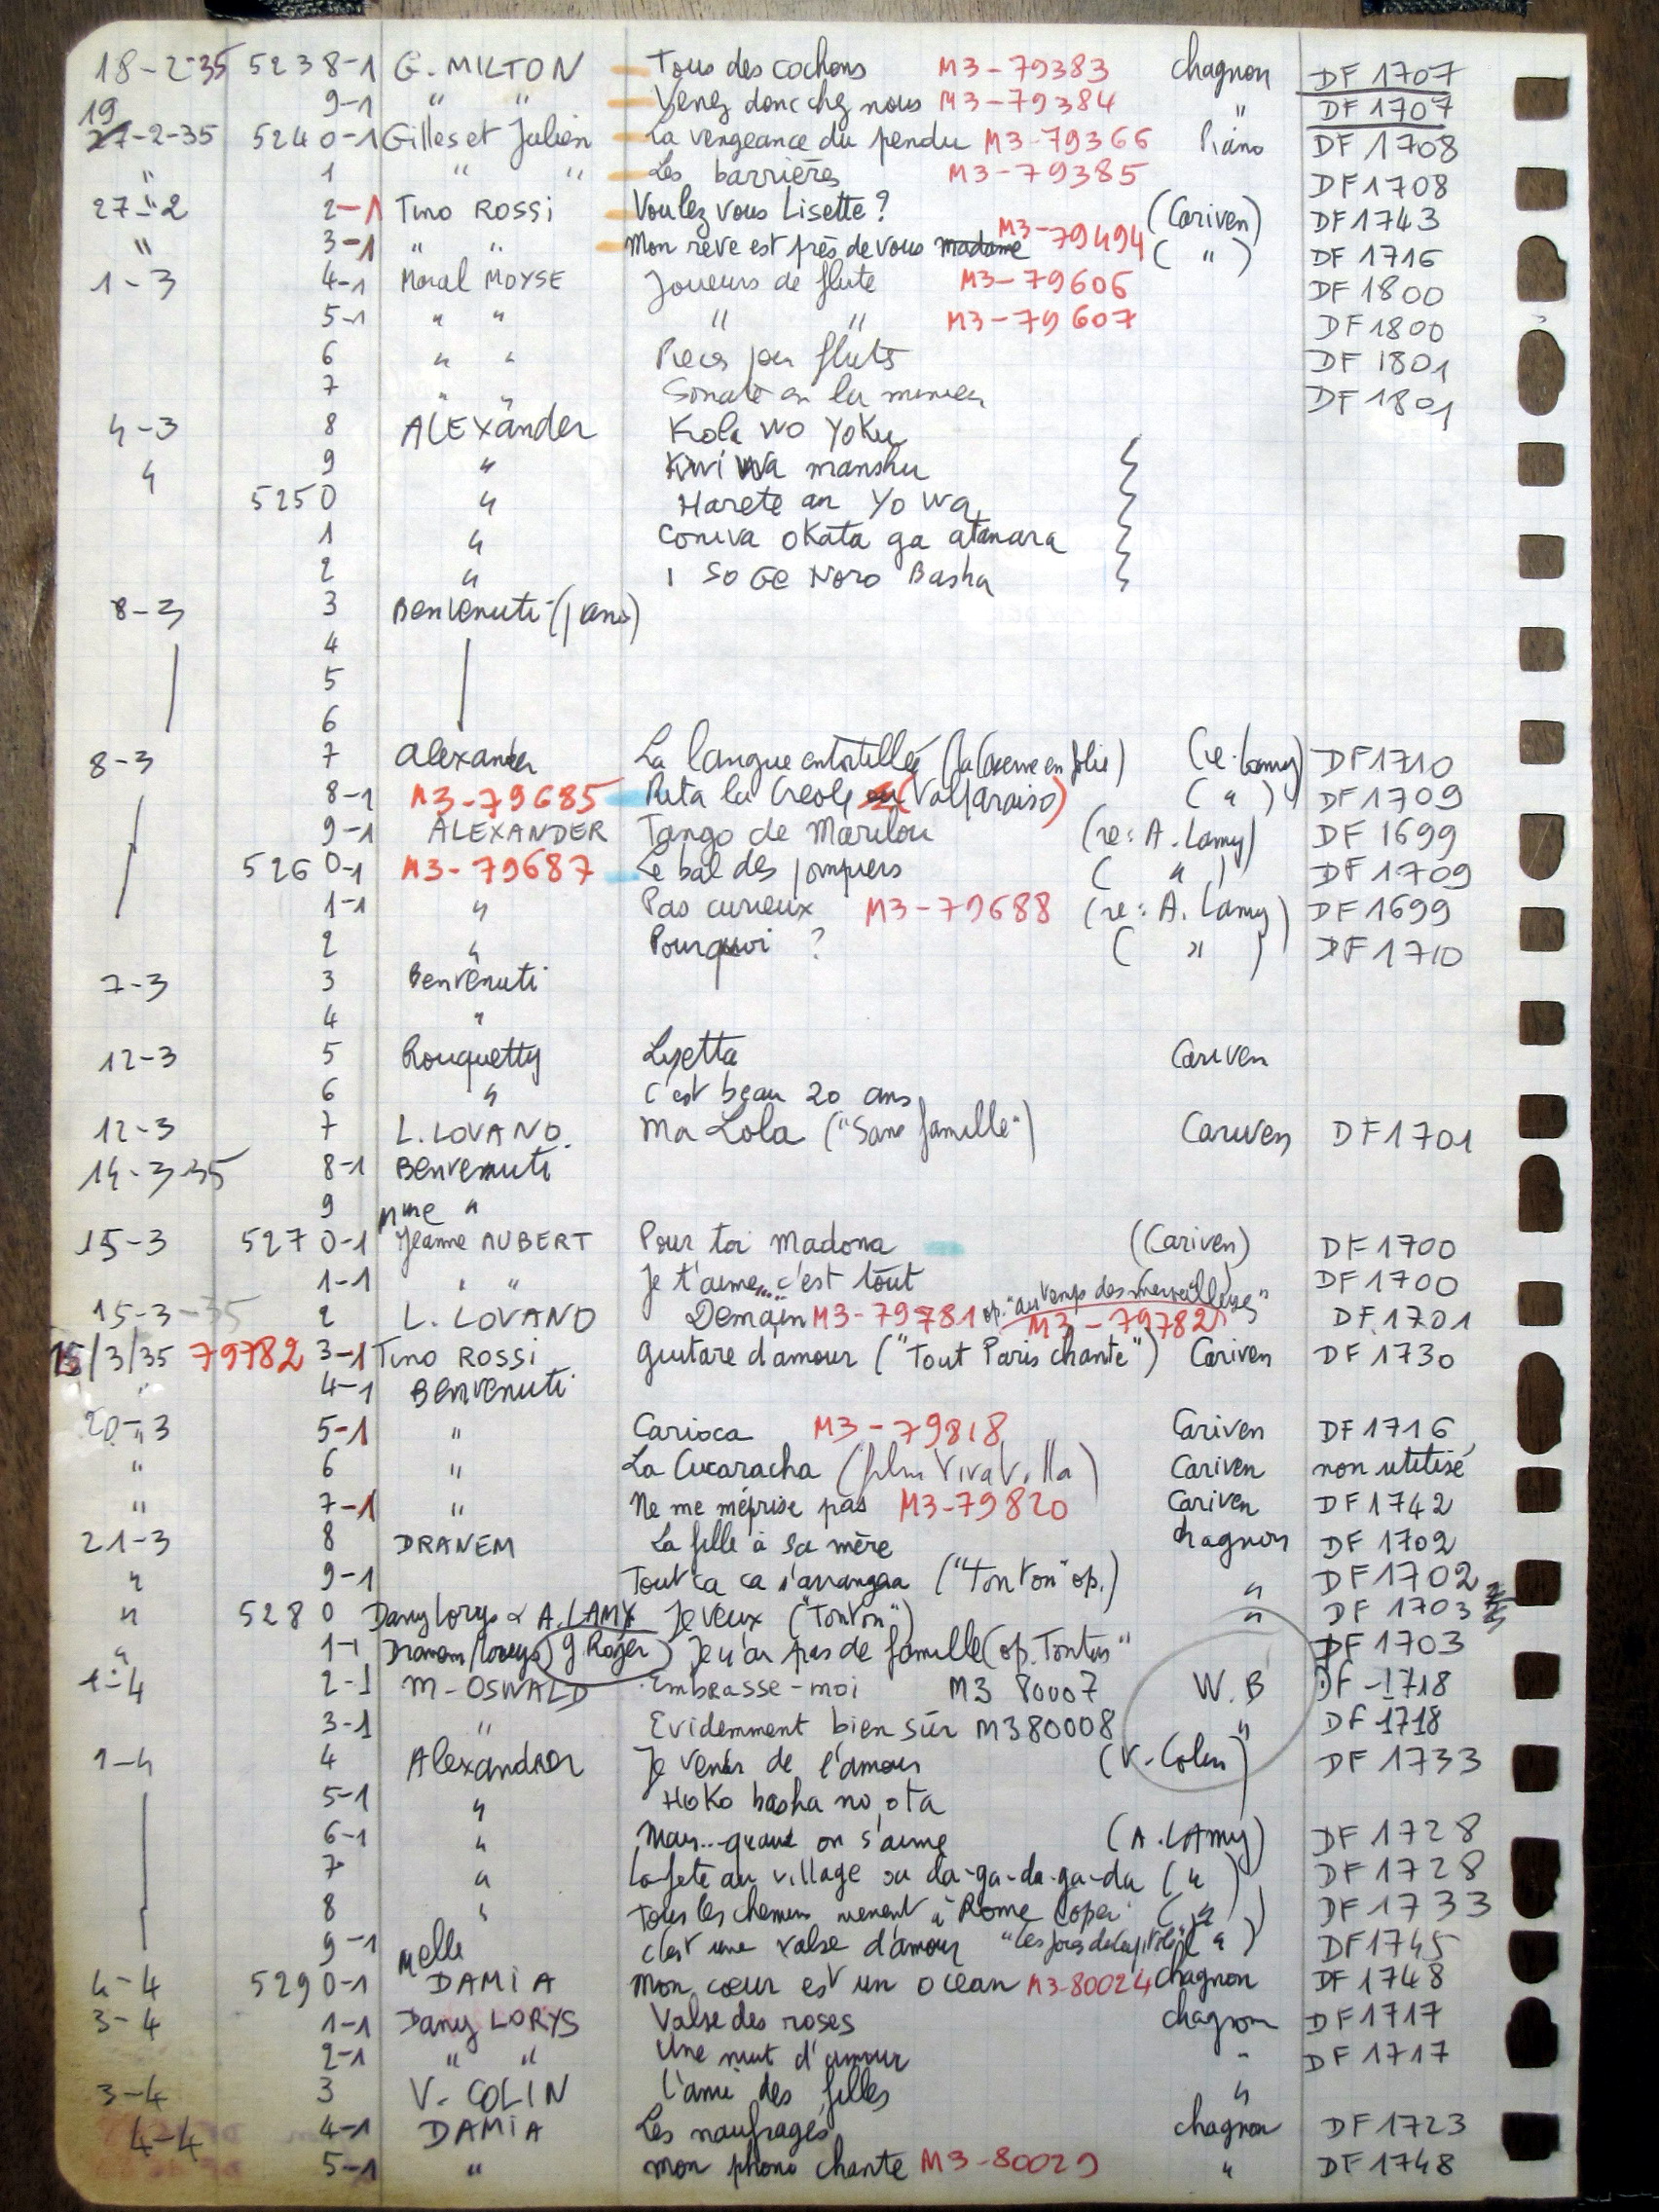 18-2-35 5238-1 G. MILTON Tous des cochons M3-79383 chagnon DF 1707
19 9-1 " " Venez donc chez nous M3-79384 " DF 1707
27-2-35 5240-1 Gilles et Julien La vengeance du pendu M3-79366 Piano DF 1708
" 1 " " Les barrières M3-79385 DF 1708
27-2 2-1 Tino ROSSI Voulez vous Lisette? (Cariven) DF 1743
" 3-1 " " Mon rêve est près de vous madame M3-79494 ( " ) DF 1716
1-3 4-1 MOYSE Joueurs de flute M3-79606 DF 1800
5-1 " " " " M3-79607 DF 1800
6 " " DF 1801
7 " " Sonate en la DF 1801
4-3 8 ALEXander Kola wo Yoku
4 9 " Kiwi wa manshu
5250 " Harete an Yo wa
1 " Coniva okata ga atamara
2 " I So Ge Noro Basha
8-3 3 Benvenuti
4
5
6
8-3 7 Alexander La langue entortillée (re. Lamy) DF 1710
8-1 M3-79685 Rita la Creole (Valparaiso) ( " ) DF 1709
9-1 ALEXANDER Tango de Marilou (re: A. Lamy) DF 1699
5260-1 M3-79687 Le bal des pompiers ( " ) DF 1709
1-1 " Pas curieux M3-79688 (re: A. Lamy) DF 1699
2 " Pourquoi ? ( " ) DF 1710
7-3 3 Benvenuti
4 "
12-3 5 Rouquetty Lysetta Cariven
6 " C'est beau 20 ans
12-3 7 L. LOVANO Ma Lola ("Sans famille") Cariven DF 1701
14-3-35 8-1 Benvenuti
9 Mme "
15-3 5270-1 Jeanne AUBERT Pour toi Madona (Cariven) DF 1700
1-1 " " Je t'aime... c'est tout DF 1700
15-3-35 2 L. LOVANO Demain M3-79781 op. "au temps des merveilleuses" M3-79782 DF 1701
15/3/35 79782 3-1 Tino ROSSI guitare d'amour ("Tout Paris chante") Cariven DF 1730
" 4-1 Benvenuti
20-3 5-1 " Carioca M3-79818 Cariven DF 1716
" 6 " La Cucaracha (film Viva Villa) Cariven non utilisé
" 7-1 " Ne me méprise pas M3-79820 Cariven DF 1742
21-3 8 DRANEM La fille à sa mère chagnon DF 1702
" 9-1 Tout ca ca s'arrangera ("Tonton" op.) " DF 1702
" 5280 Dany Lorys & A. LAMY Je veux ("Tonton") " DF 1703
" 1-1 Dranem/Lorys (g Roger) Je n'ai pas de famille (op. Tonton" DF 1703
1-4 2-1 M-OSWALD Embrasse-moi M3 80007 W.B DF-1718
3-1 " Evidemment bien sûr M3 80008 " DF 1718
1-4 4 Alexander Je viens de l'amour (V. Colin) DF 1733
5-1 " Hoko basha no ota
6-1 " Mais...quand on s'aime (A. LAmy) DF 1728
7 " La fete au village ou da-ga-da-ga-da ( " ) DF 1728
8 " Tous les chemins menent à Rome ( " ) DF 1733
9-1 c'est une valse d'amour ( " ) DF 1745
4-4 5290-1 Melle DAMIA Mon cœur est un ocean M3-80024 chagnon DF 1748
3-4 1-1 Dany LORYS Valse des roses chagnon DF 1717
2-1 " " Une nuit d'amour - DF 1717
3-4 3 V. COLIN L'ami des filles "
4-4 4-1 DAMIA Les naufragés chagnon DF 1723
5-1 " mon phono chante M3-80029 " DF 1748